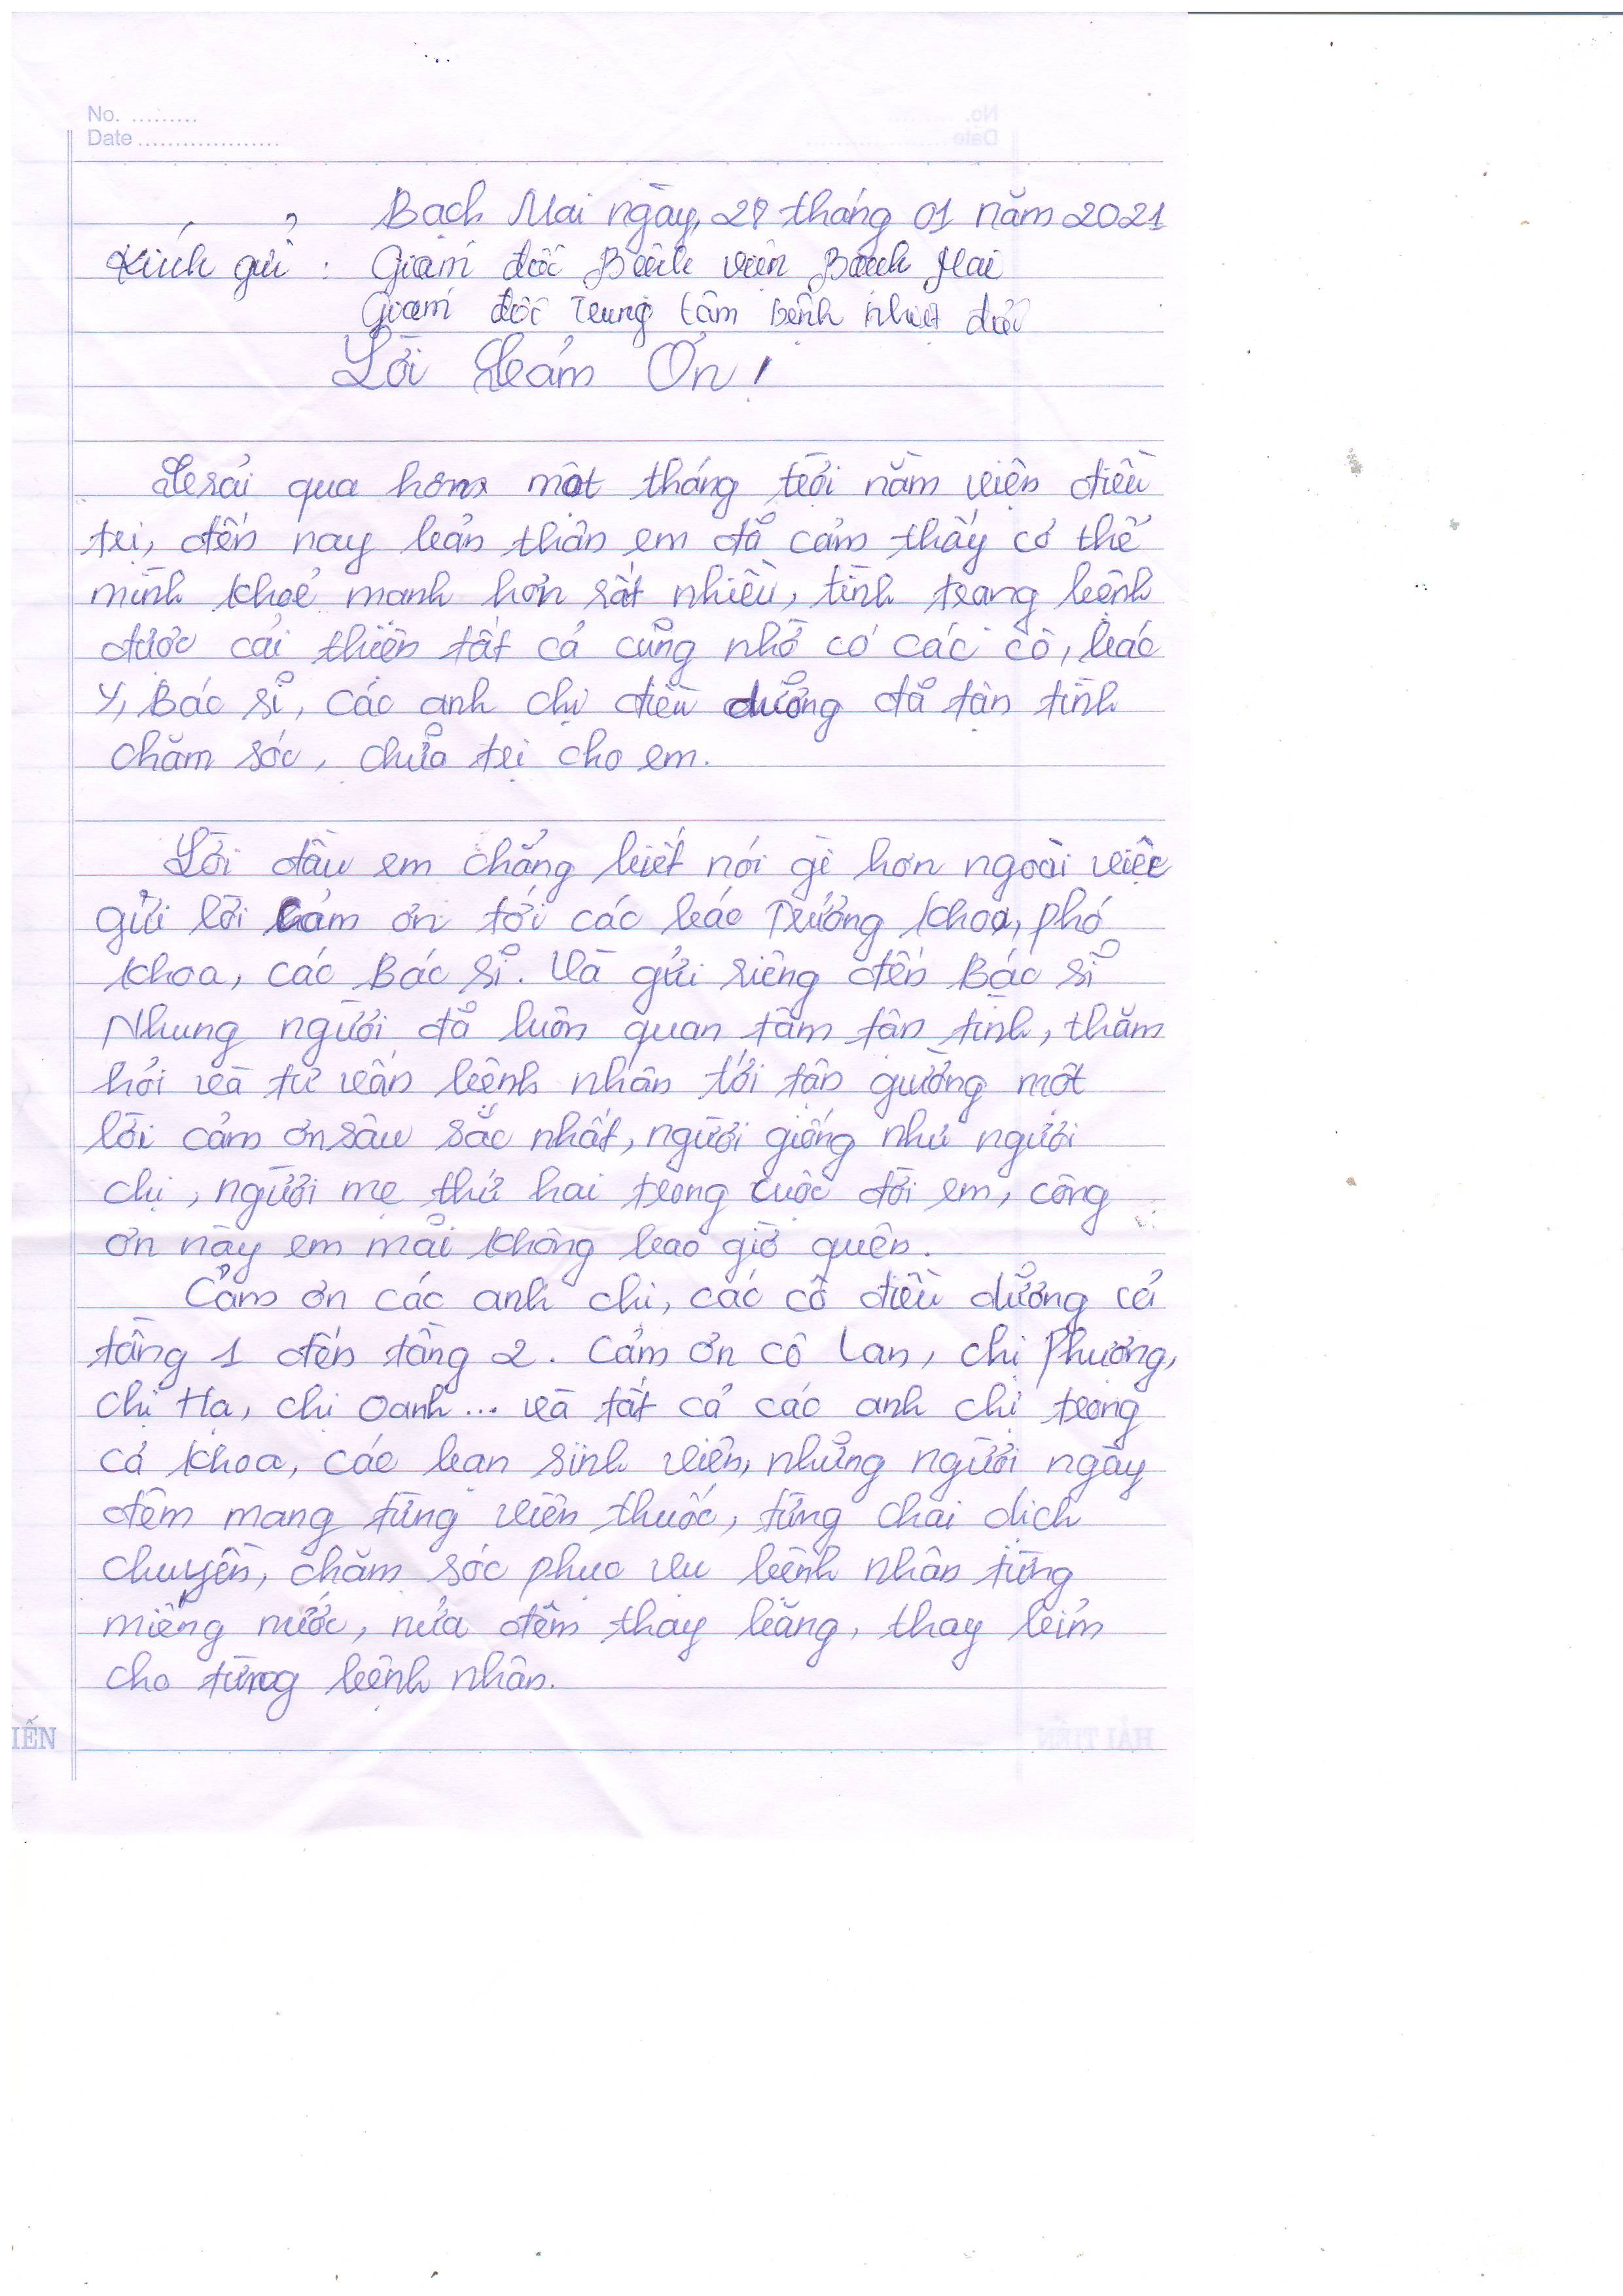 No. .........
Date ...................
Bạch Mai ngày, 28 tháng 01 năm 2021
Kính gửi : Giám đốc Bệnh viện Bạch Mai
Giám đốc Trung tâm bệnh nhiệt đới
Lời Cảm Ơn!
Trải qua hơn một tháng trời nằm viện điều
trị, đến nay bản thân em đã cảm thấy cơ thể
mình khoẻ mạnh hơn rất nhiều, tình trạng bệnh
được cải thiện tất cả cũng nhờ có các cô, bác
Y, Bác sĩ, các anh chị điều dưỡng đã tận tình
chăm sóc, chữa trị cho em.
Lời đầu em chẳng biết nói gì hơn ngoài việc
gửi lời cảm ơn tới các bác Trưởng khoa, phó
khoa, các Bác sĩ. Và gửi riêng đến Bác sĩ
Nhung người đã luôn quan tâm tận tình, thăm
hỏi và tư vấn bệnh nhân tới tận giường một
lời cảm ơn sâu sắc nhất, người giống như người
chị, người mẹ thứ hai trong cuộc đời em, công
ơn này em mãi không bao giờ quên.
Cảm ơn các anh chị, các cô điều dưỡng cả
tầng 1 đến tầng 2. Cảm ơn cô Lan, chị Phương,
chị Hạ, chị Oanh... và tất cả các anh chị trong
cả khoa, các bạn sinh viên, những người ngày
đêm mang từng viên thuốc, từng chai dịch
chuyền, chăm sóc phục vụ bệnh nhân từng
miếng nước, nửa đêm thay băng, thay bỉm
cho từng bệnh nhân.
IẾN